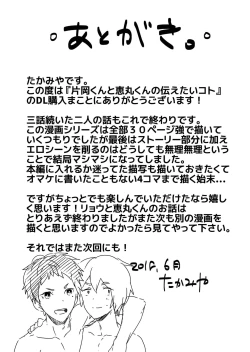 。あとがき。
たかみやです。
この度は『片岡くんと恵丸くんの伝えたいコト』
のDL購入まことにありがとうございます！
三話続いた二人の話もこれで終わりです。
この漫画シリーズは全部３０ページ強で描いて
いくつもりでしたが最後はストーリー部分に加え
エロシーンを削るのはどうしても無理無理という
ことで結局マシマシになってしまいました。
本編に入れるか迷ってた描写も描いておきたくて
オマケに書いたこともない4コマまで描く始末…
ですがちょっとでも楽しんでいただけたなら嬉し
く思います！リョウと恵丸くんのお話は
とりあえず終わりましたがまた次も別の漫画を
描くと思いますのでよかったら見てやって下さい。
それではまた次回にも！
6月
たかみや